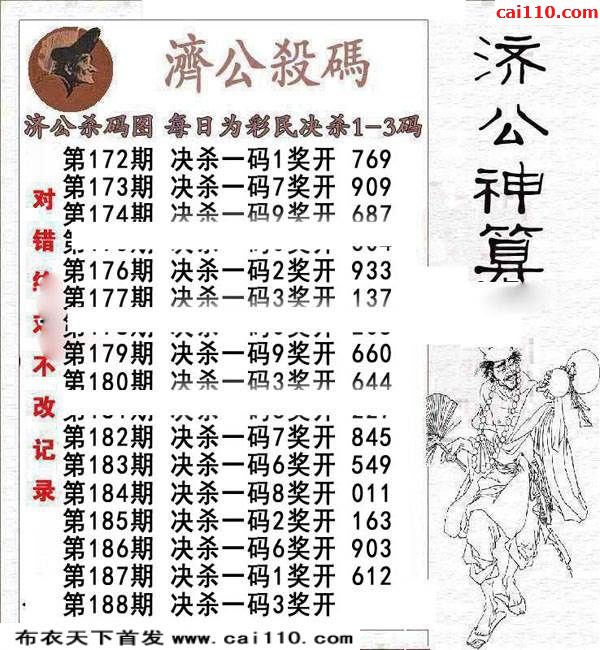 cai110.com
濟公殺碼
济公神算
济公杀码图 每日为彩民决杀1-3码
对错 不改记录
第172期 决杀一码1奖开 769
第173期 决杀一码7奖开 909
第174期 决杀一码9奖开 687
第176期 决杀一码2奖开 933
第177期 决杀一码3奖开 137
第179期 决杀一码9奖开 660
第180期 决杀一码3奖开 644
第182期 决杀一码7奖开 845
第183期 决杀一码6奖开 549
第184期 决杀一码8奖开 011
第185期 决杀一码2奖开 163
第186期 决杀一码6奖开 903
第187期 决杀一码1奖开 612
第188期 决杀一码3奖开
布衣天下首发 www.cai110.com